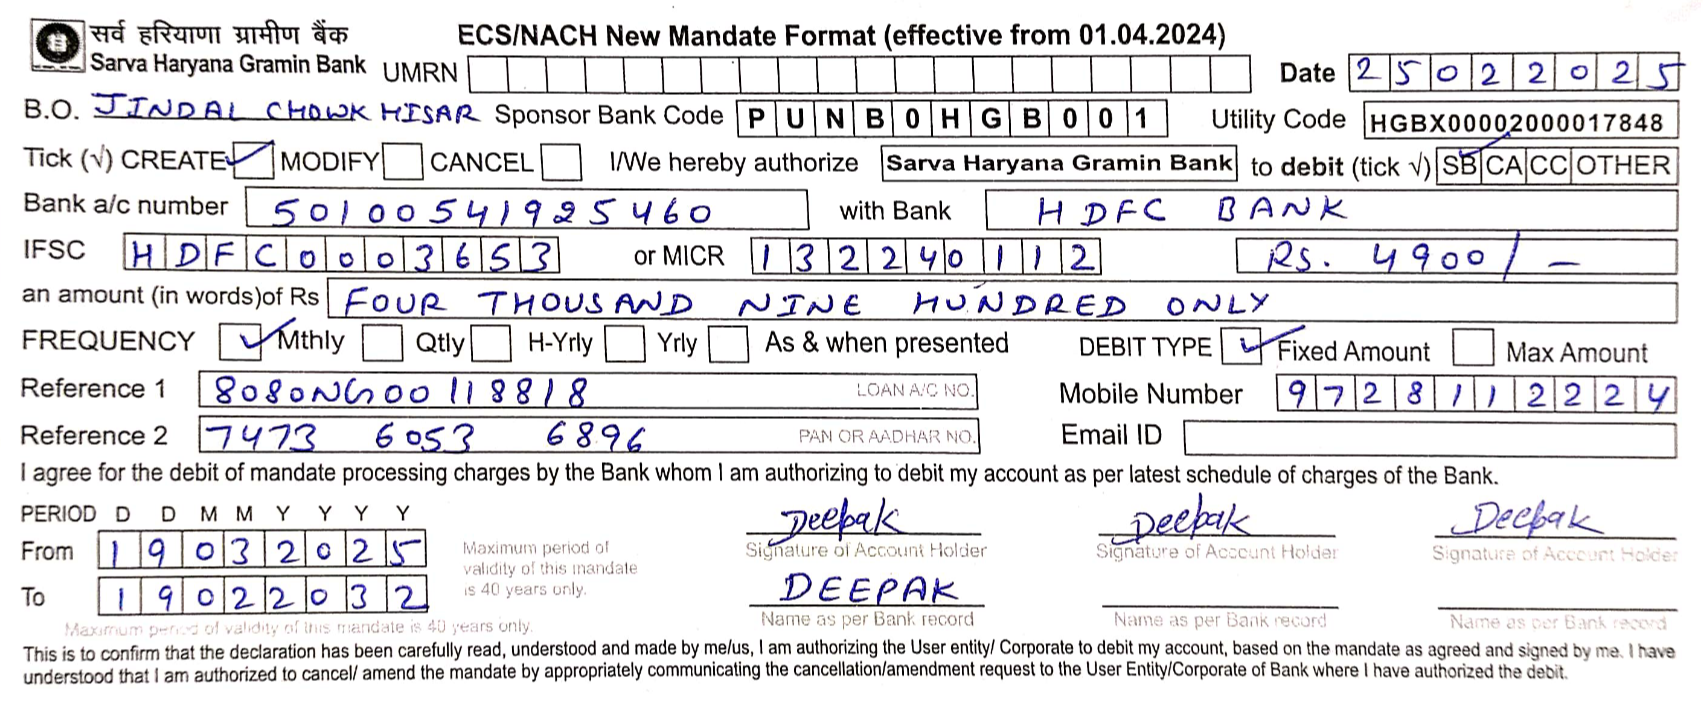 सर्व हरियाणा ग्रामीण बैंक
Sarva Haryana Gramin Bank
ECS/NACH New Mandate Format (effective from 01.04.2024)
UMRN Date 25022025
B.O. JINDAL CHOWK HISAR Sponsor Bank Code PUNB0HGB001 Utility Code HGBX00002000017848
Tick (√) CREATE ✓ MODIFY CANCEL I/We hereby authorize Sarva Haryana Gramin Bank to debit (tick √) SB ✓ CA CC OTHER
Bank a/c number 50100541925460 with Bank HDFC BANK
IFSC HDFC0003653 or MICR 132240112 RS. 4900/-
an amount (in words)of Rs FOUR THOUSAND NINE HUNDRED ONLY
FREQUENCY ✓ Mthly Qtly H-Yrly Yrly As & when presented DEBIT TYPE ✓ Fixed Amount Max Amount
Reference 1 8080NG00118818 LOAN A/C NO. Mobile Number 9728112224
Reference 2 7473 6053 6896 PAN OR AADHAR NO. Email ID
I agree for the debit of mandate processing charges by the Bank whom I am authorizing to debit my account as per latest schedule of charges of the Bank.
PERIOD D D M M Y Y Y Y
From 19032025
To 19022032
Maximum period of validity of this mandate is 40 years only.
Maximum period of
validity of this mandate
is 40 years only.
Deepak Deepak Deepak
Signature of Account Holder Signature of Account Holder Signature of Account Holder
DEEPAK
Name as per Bank record Name as per Bank record Name as per Bank record
This is to confirm that the declaration has been carefully read, understood and made by me/us, I am authorizing the User entity/ Corporate to debit my account, based on the mandate as agreed and signed by me. I have
understood that I am authorized to cancel/ amend the mandate by appropriately communicating the cancellation/amendment request to the User Entity/Corporate of Bank where I have authorized the debit.